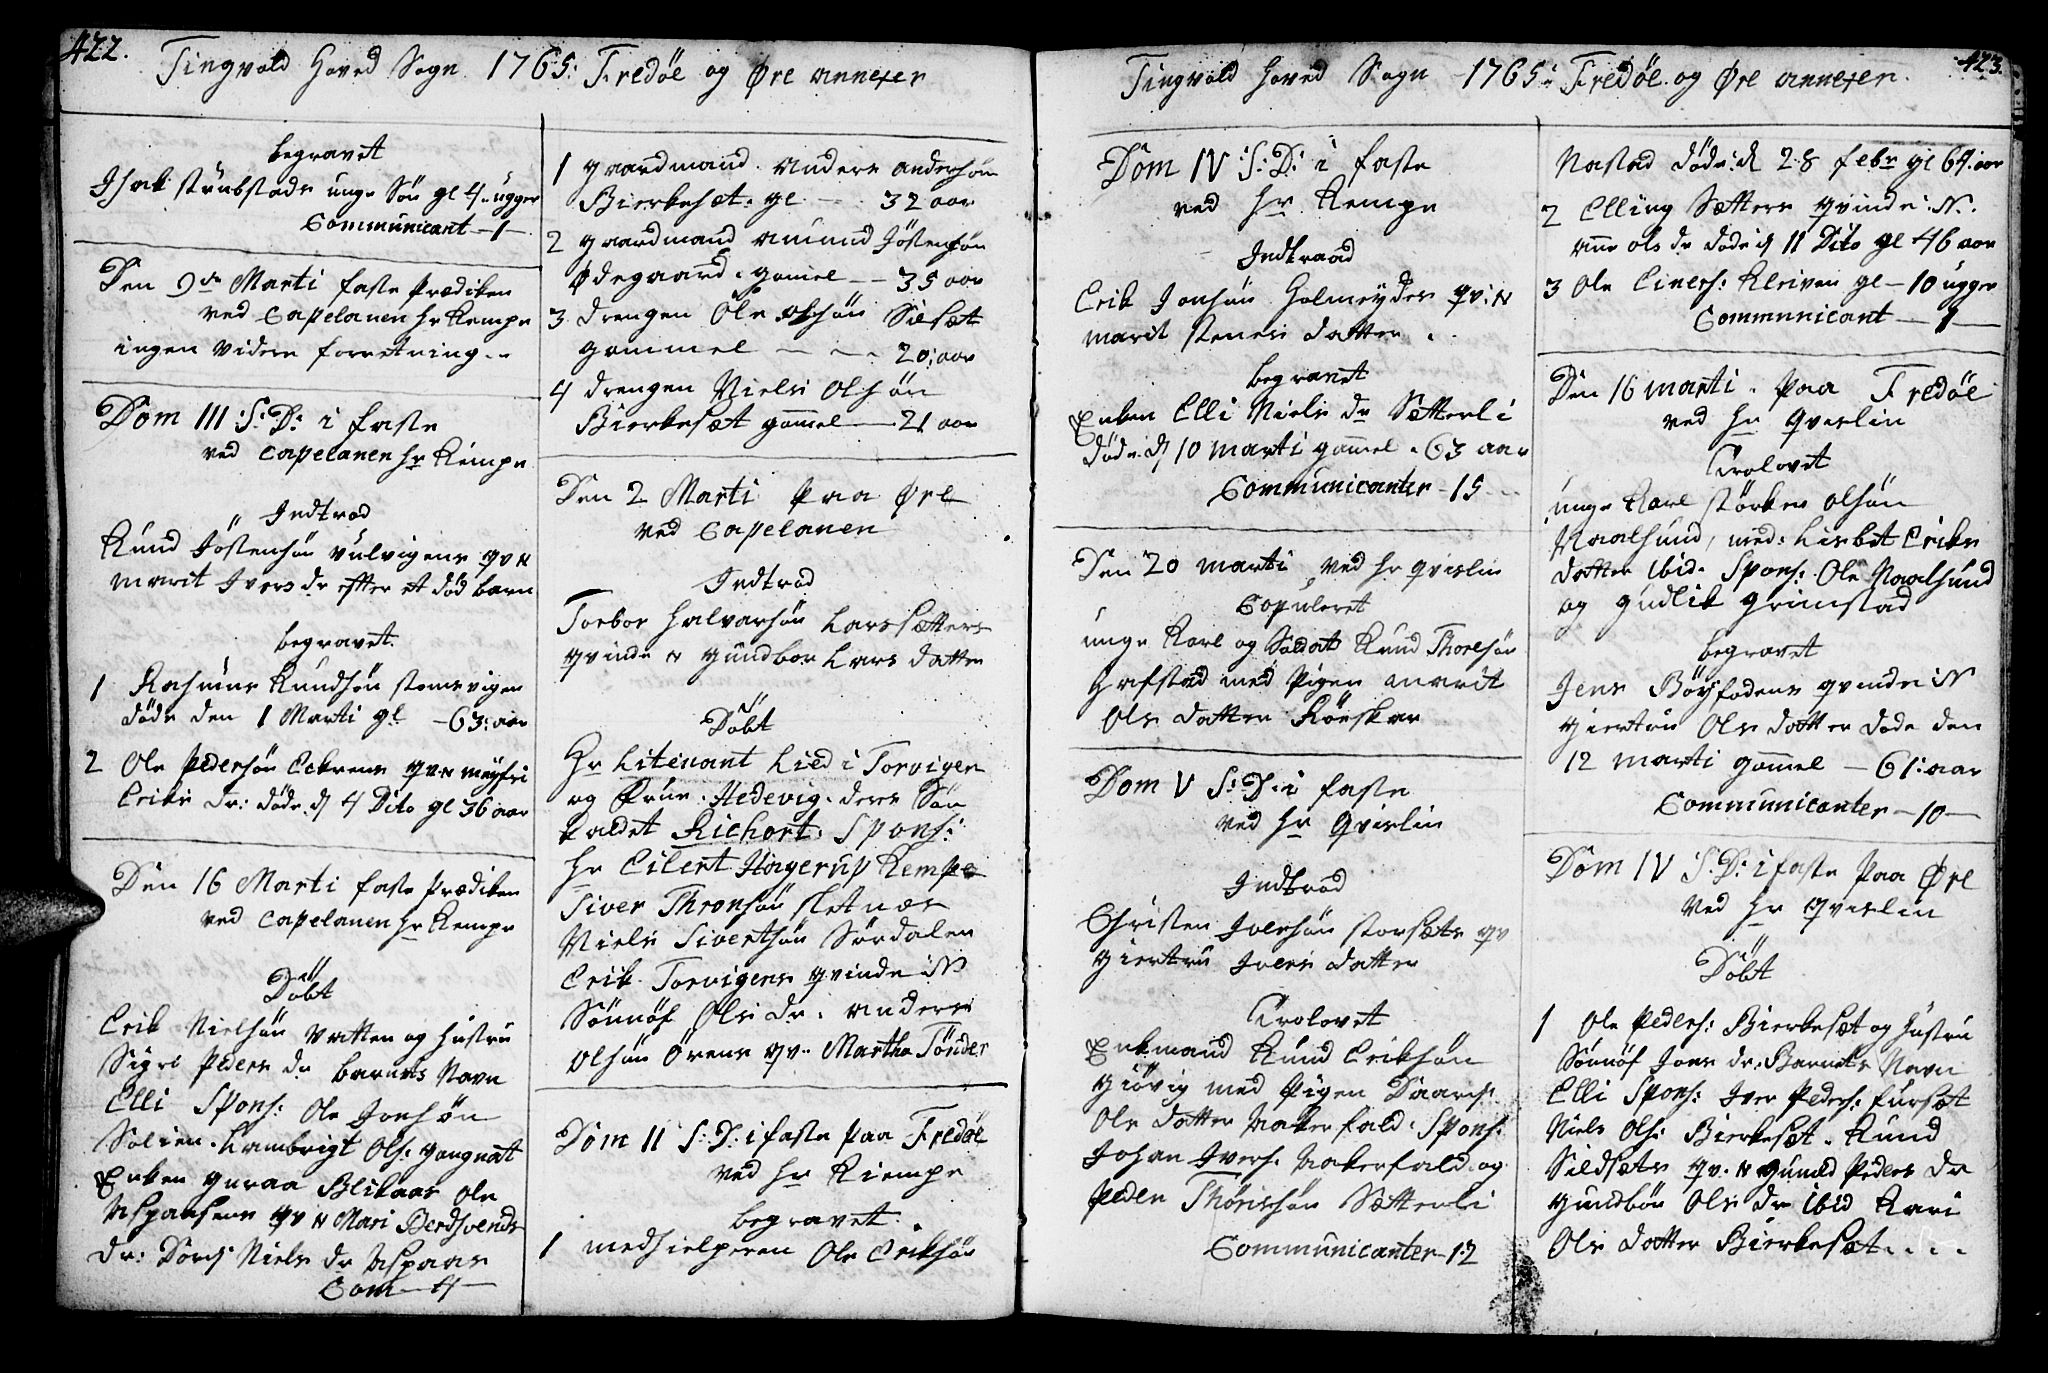 422.
Tingvold Hoved Sogn 1765: Fredöe og Øre annexer
begravet
Isak strubstads unge Sön gl 4 ugger
Communicant - 1 -
Den 9de Marti faste Prædiken
ved Capelanen Hr Kempe
ingen videre forretning
Dom III S: D: i faste
ved Capelanen Hr Kempe
Indtrod
Knud Jöstensön Vulvigens qv N
Marit Ivers dr efter et död barn
begravet.
1 Rasmus Knudsön stomsvigen
döde den 1 Marti gl - 63: aar
2 Ole Pedersön Eckrens qv N
Eriks Dr: döde d 4 Dito gl 36 aar
Den 16 Marti faste Prædiken
ved Capelanen Hr Kempe
Döbt
Erik Nielsön Vatten og Hustru
Sigri Peders dr barnets Navn
Elli Spons: Ole Jonsön
Solien. Lambrigt Ols: gangnat
Enken guraa Blikaas Ole
Aspaasens qv N Mari Berdsvends
dr: Dordi Niels dr Aspaas
Com - 4 -
1 gaardmand Anders andersön
Bierkeset. gl - 32 aar
2 gaardmand amund Jöstensön
Ødegaard. gamel - 35 aar
3 drengen Ole olsön Silset
gammel - 20: aar
4 drengen Niels Olsön
Bierkesæt gamel - 21 aar
Den 2 Marti Paa Øre
ved Capelanen
Indtrod
Torbor Halvarsön Larssetters
qvinde N gundbor Lars datter
Döbt
Hr Litenant Lied i Torvigen
og Frue. Hedevig. deres Sön
kaldet Richart. Spons:
Hr Eilert Hagerup Kempe
Siver Thronsön sletnæs
Niels Sivertsön Sördalen
Erik Torvigens qvinde N
Sönnöf Ols dr. anders
Olsön Örens qv. Martha Tönder
Dom II S: D: i faste paa Fredöe
ved Hr Kiempe
begravet.
1 medhielperen Ole Eriksön
423.
Tingvold Hoved Sogn 1765: Fredöe og Øre annexer.
Dom IV S: D: i faste
ved Hr Kempe
Indtraad
Erik Jonsön Holmeyder qv: N
marit stener datter.
begravet
Enken Elli Niels dr Setterli
döde d 10 marti gamel. 63 aar
Communicanter - 15
Den 20 marti ved Hr Qvislin
Copuleret
unge Karl og Soldat Knud Thoresön
Hafstad med Pigen marit
Ols datter Röeskar
Dom V S: D: i faste
ved Hr Qvislin
Indtrod
Christen Joensön storsets qv
giertru Ivers datter
Trolovet
Enkmand Knud Eriksön
giövig med Pigen
Ols datter Aakerfald. Spons:
Johan Ivers: Aakerfald og
Peder Thörissön Setterli
Communicanter - 12
Nastad döde: d 28 febr gl 64: aar
2 Elling Sætters qvinde: N.
ane ols dr döde d 11 Dito gl 46 aar
3 Ole Einers: Kleiven gl - 10 ugger
Communicant - 1 -
Den 16 marti. paa Fredöe
ved Hr Qvislin
Trolovet
unge Karl störker olsön
Naalsund, med: Lisbet Eriks
datter ibid. Spons: Ole Naalsund
og gudlik grimstad
begravet
Jens Böysfodens qvinde N
giertru Ols datter döde den
12 marti gamel - 61: aar
Communicanter - 10 -
Dom IV S: D: i faste Paa Øre
Ved Hr Qvislin
Döbt
1 Ole Peders: Bierkesæt og Hustru
Sönnöf Jons dr: Barnets Navn
Elli Spons: Iver Peders: fursæt
Niels Ols: Bierkesæt. Knud
Sildsets qv. N gunild Peders dr
gundbör Ols dr ibid Kari
Ols datter Bierkesæt